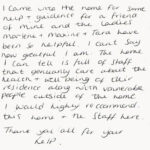 I came into the home for some
help & guidance for a friend
of mine and the Ladies
Marlene & Maxine & Tara have
been so helpful. I cant say
how greatful I am. The home
I can tell is full of staff
that genuinly care about the
health & well being of their
residence along with vounerable
people outside of the home.
I would highly reccommend
this home & the staff here.
Thank you all for your
help.